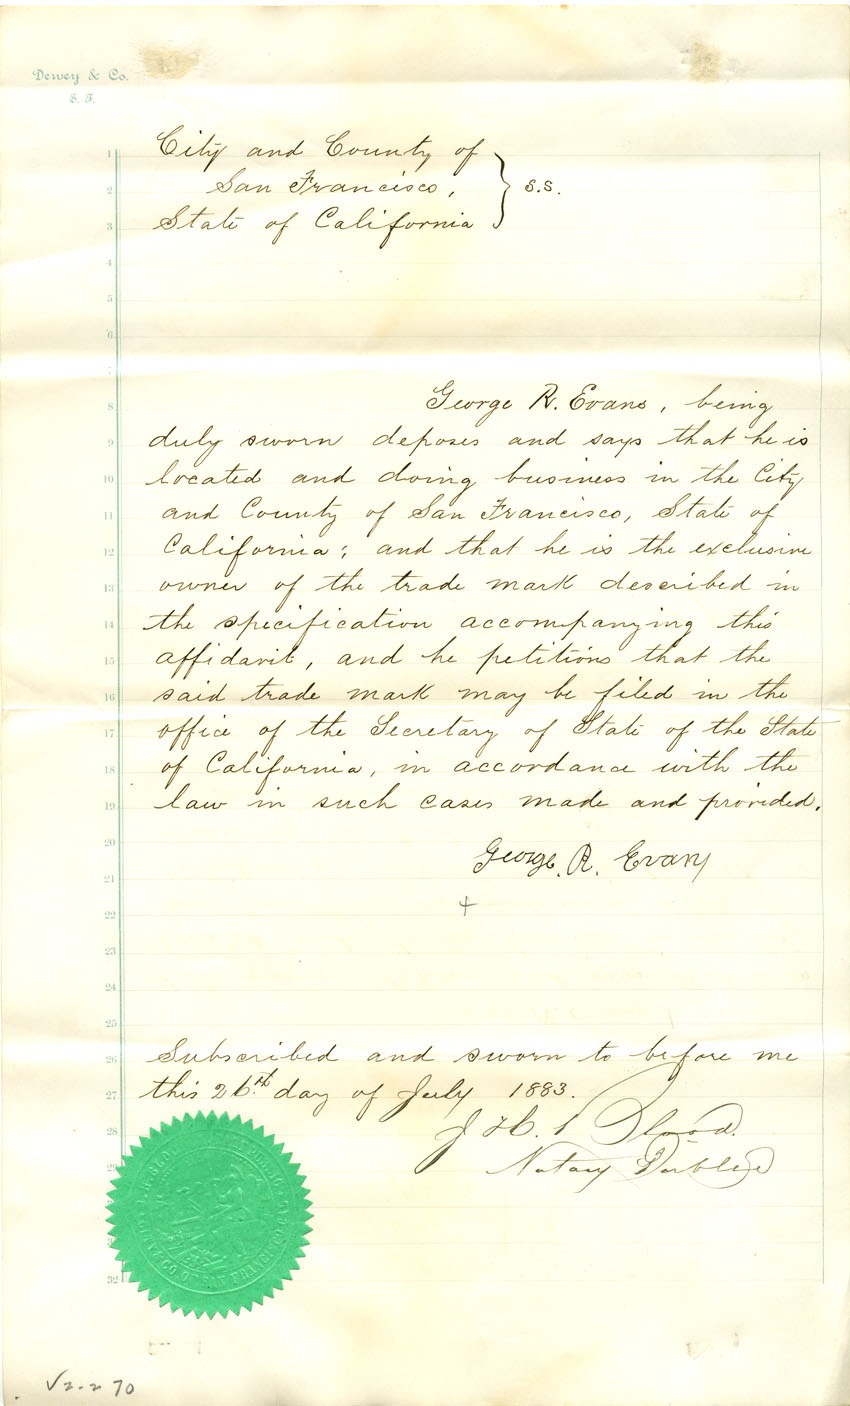 Dewey & Co.
S. F.
City and County of
San Francisco,
State of California
} S.S.
George R. Evans, being
duly sworn deposes and says that he is
located and doing business in the City
and County of San Francisco, State of
California; and that he is the exclusive
owner of the trade mark described in
the specification accompanying this
affidavit, and he petitions that the
said trade mark may be filed in the
office of the Secretary of State of the State
of California, in accordance with the
law in such cases made and provided.
George. R. Evans
+
Subscribed and sworn to before me
this 26th day of July 1883.
J H. Blood.
Notary Public
1
2
3
4
5
6
7
8
9
10
11
12
13
14
15
16
17
18
19
20
21
22
23
24
25
26
27
28
29
32
SAN FRANCISCO CAL.
70